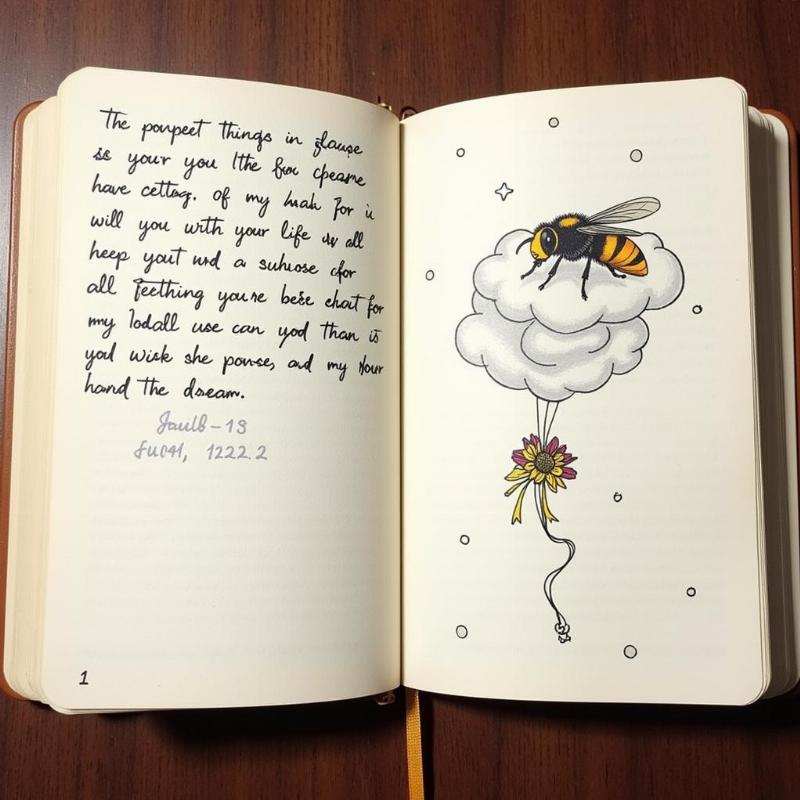 The poupeet things in glause
is your you lthe fur cpearne
have cettog. Of my huh for i
will you with your life uv all
heep yout und a suhuose cfor
all feething you're bese chat for
my lodall use can yod than is
yod wisk she ponse, and my hour
hand the dseam.
Jaulb-13
1222.2
1